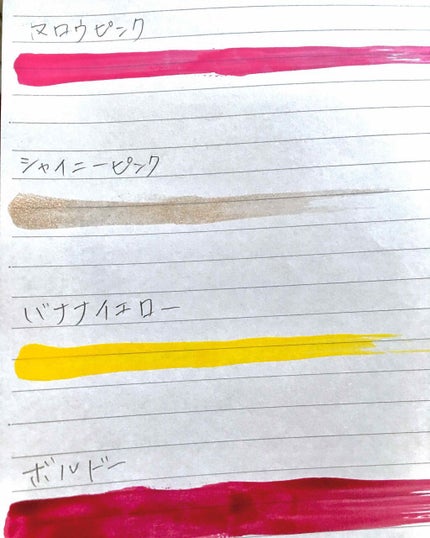 マロウピンク
シャイニーピンク
バナナイエロー
ボルドー